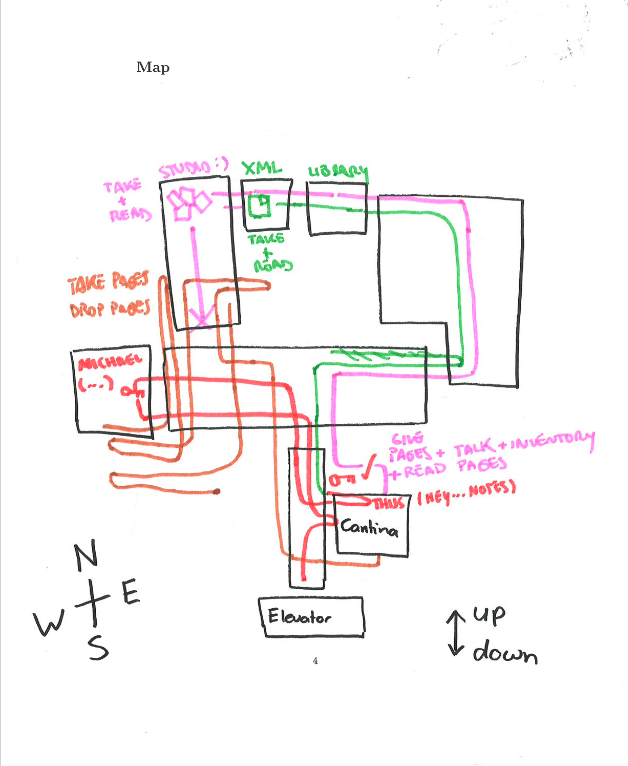 Map
STUDIO :)
XML
LIBRARY
TAKE
+
READ
TAKE
+
READ
TAKE PAGES
DROP PAGES
MICHAEL
(...)
GIVE
PAGES + TALK + INVENTORY
+ READ PAGES
THUS (HEY... NOTES)
Cantina
N
W E
S
Elevator
up
down
4